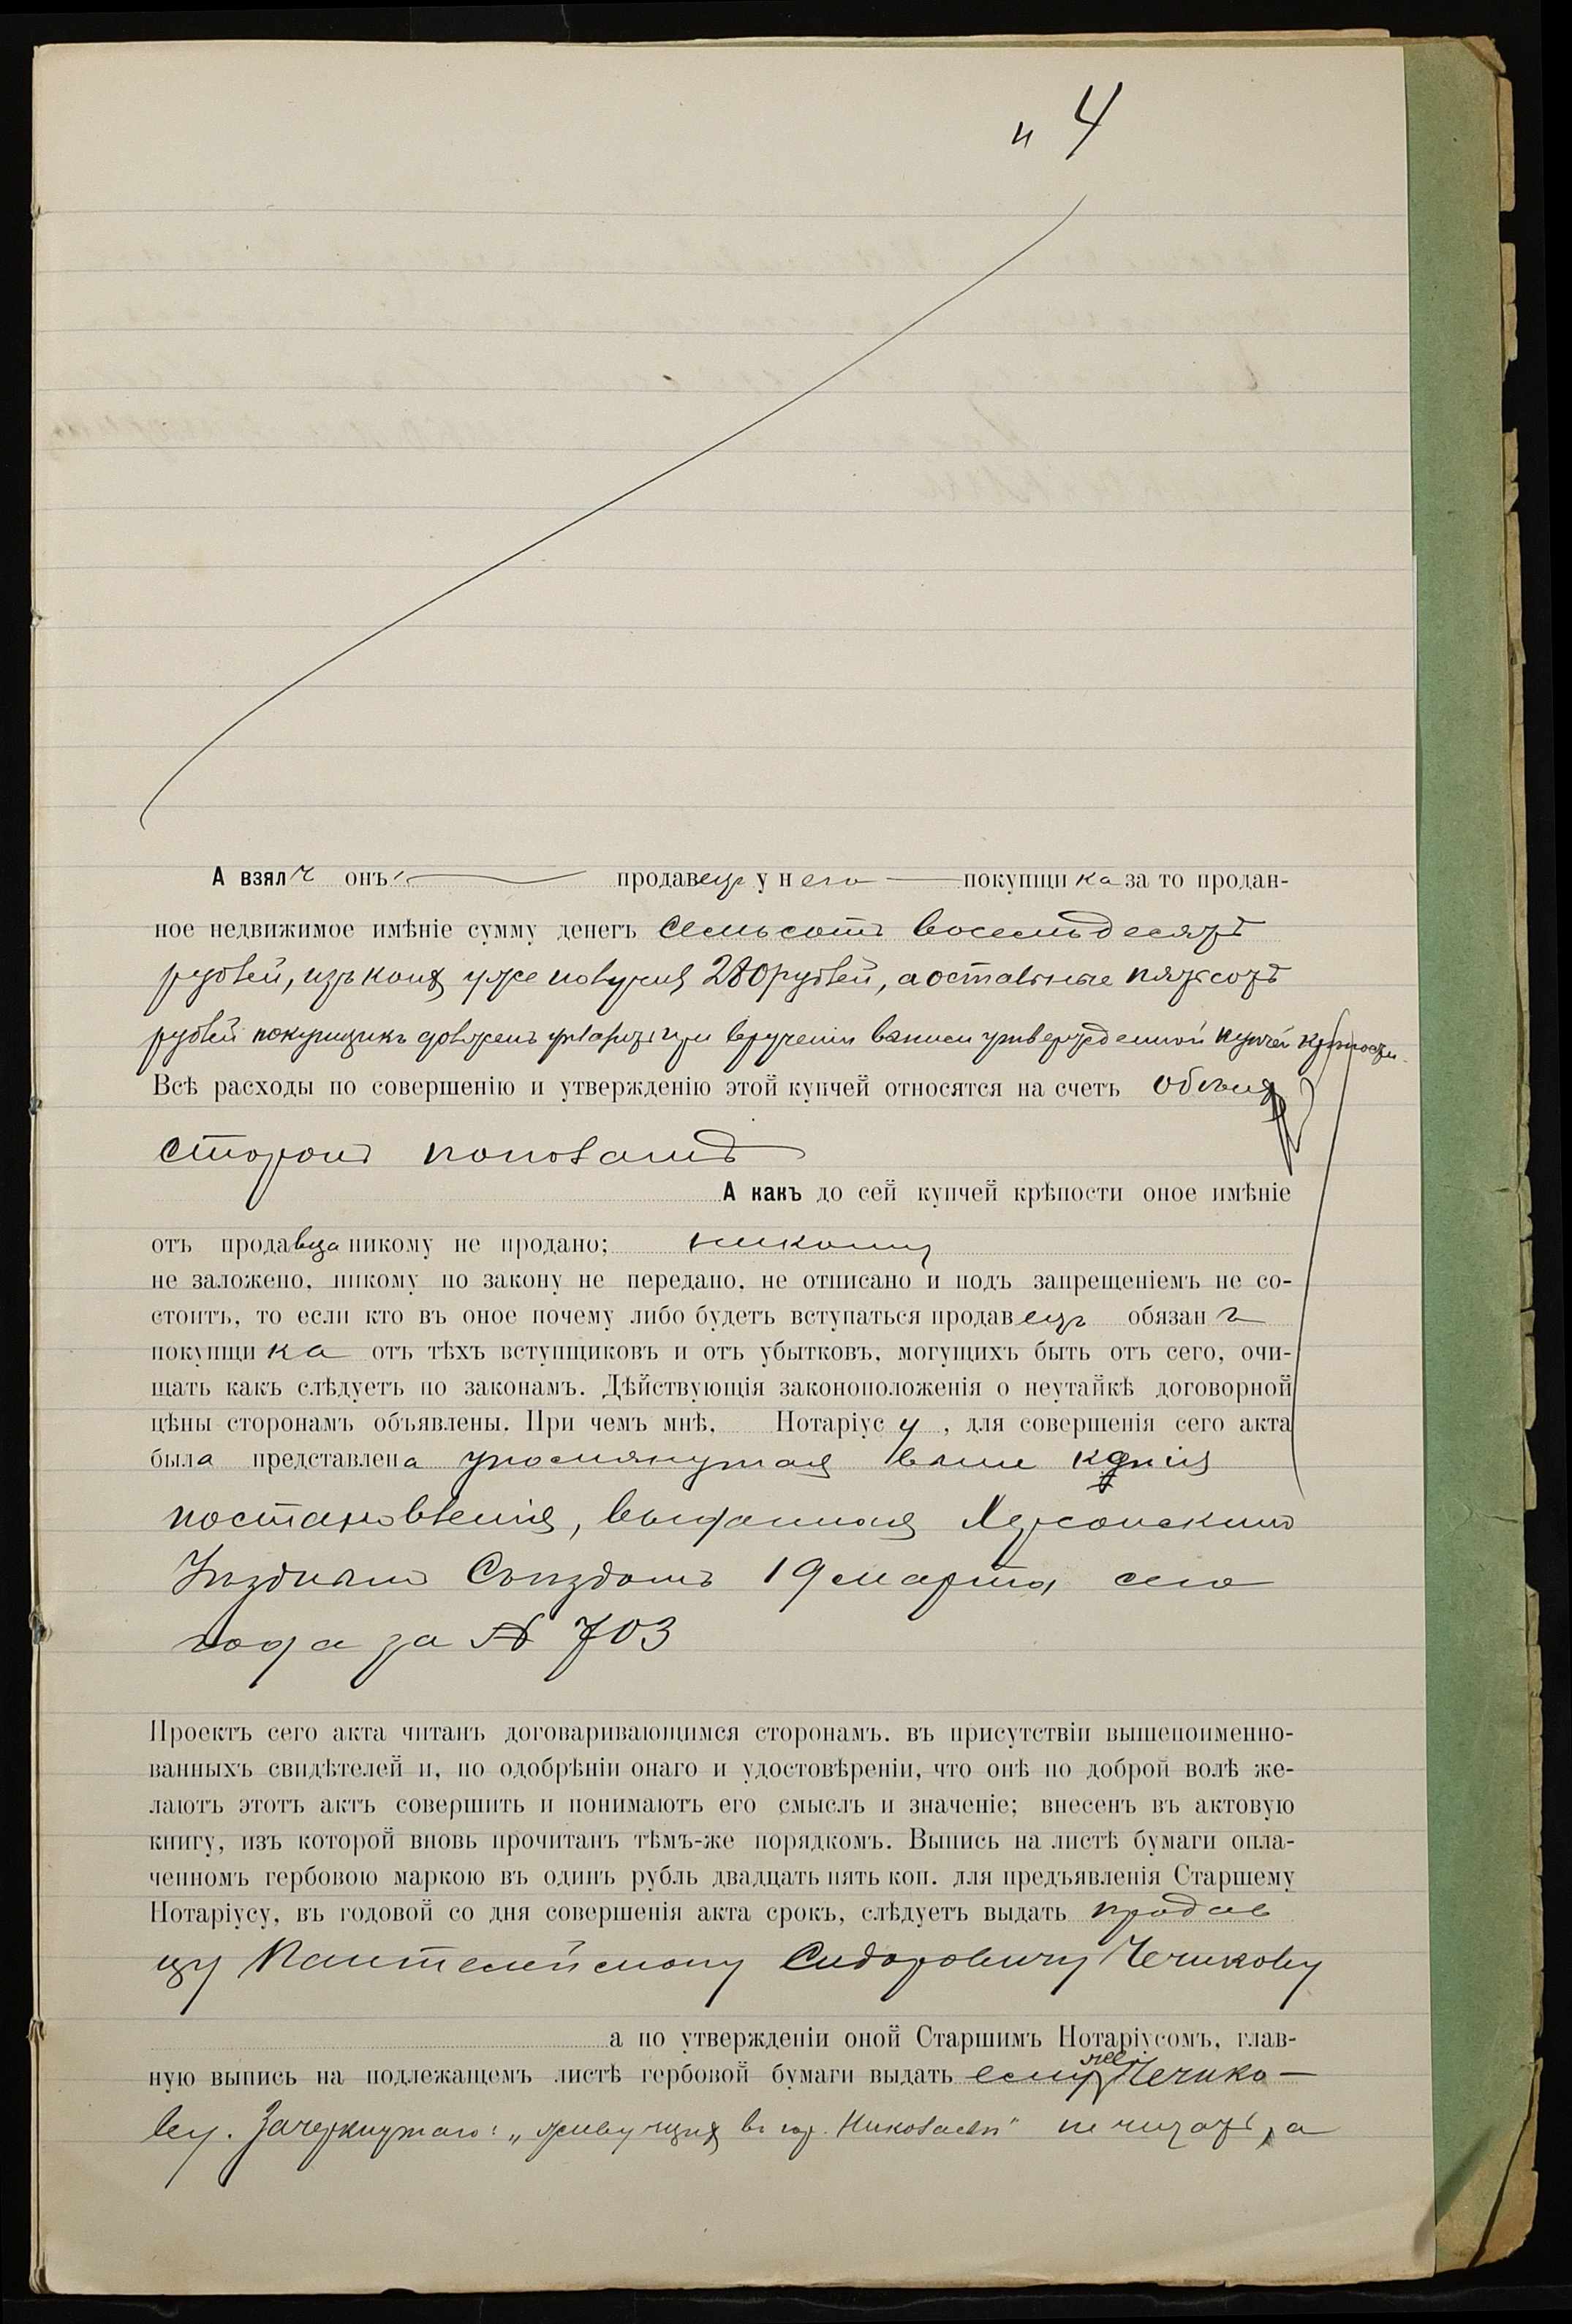 и 4
А взялъ онъ, продавецъ у него покупщика за то продан-
ное недвижимое имѣніе сумму денегъ семьсотъ восемьдесятъ
рублей, изъ коихъ уже получилъ 280 рублей, а остальные пятьсотъ
рублей покупщикъ долженъ уплатить при врученіи выписи утвержденной купчей крѣпости.
Всѣ расходы по совершенію и утвержденію этой купчей относятся на счетъ обѣихъ
сторонъ пополамъ
А какъ до сей купчей крѣпости оное имѣніе
отъ продавца никому не продано; никому
не заложено, никому по закону не передано, не отписано и подъ запрещеніемъ не со-
стоитъ, то если кто въ оное почему либо будетъ вступаться продавецъ обязанъ
покупщика отъ тѣхъ вступщиковъ и отъ убытковъ, могущихъ быть отъ сего, очи-
щать какъ слѣдуетъ по законамъ. Дѣйствующія законоположенія о неутайкѣ договорной
цѣны сторонамъ объявлены. При чемъ мнѣ, Нотаріусу, для совершенія сего акта
была представлена упомянутая выше копія
постановленія, выданная Херсонскимъ
Уѣзднымъ Съѣздомъ 19 марта сего
года за № 703
Проектъ сего акта читанъ договаривающимся сторонамъ. въ присутствіи вышепоименно-
ванныхъ свидѣтелей и, по одобрѣніи онаго и удостовѣреніи, что онѣ по доброй волѣ же-
лаютъ этотъ актъ совершить и понимаютъ его смыслъ и значеніе; внесенъ въ актовую
книгу, изъ которой вновь прочитанъ тѣмъ-же порядкомъ. Выпись на листѣ бумаги опла-
ченномъ гербовою маркою въ одинъ рубль двадцать пять коп. для предъявленія Старшему
Нотаріусу, въ годовой со дня совершенія акта срокъ, слѣдуетъ выдать продав
цу Пантелеймону Сидоровичу Чечикову
а по утвержденіи оной Старшимъ Нотаріусомъ, глав-
ную выпись на подлежащемъ листѣ гербовой бумаги выдать ему же Чечико-
ву. Зачеркнутаго: „живущихъ въ гор. Николаевѣ“ не читать, а